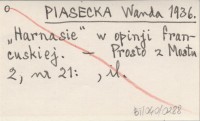 PIASECKA Wanda 1936.
„Harnasie" w opinji fran-
cuskiej. – Prosto z Mostu
2, nr 21: , il.